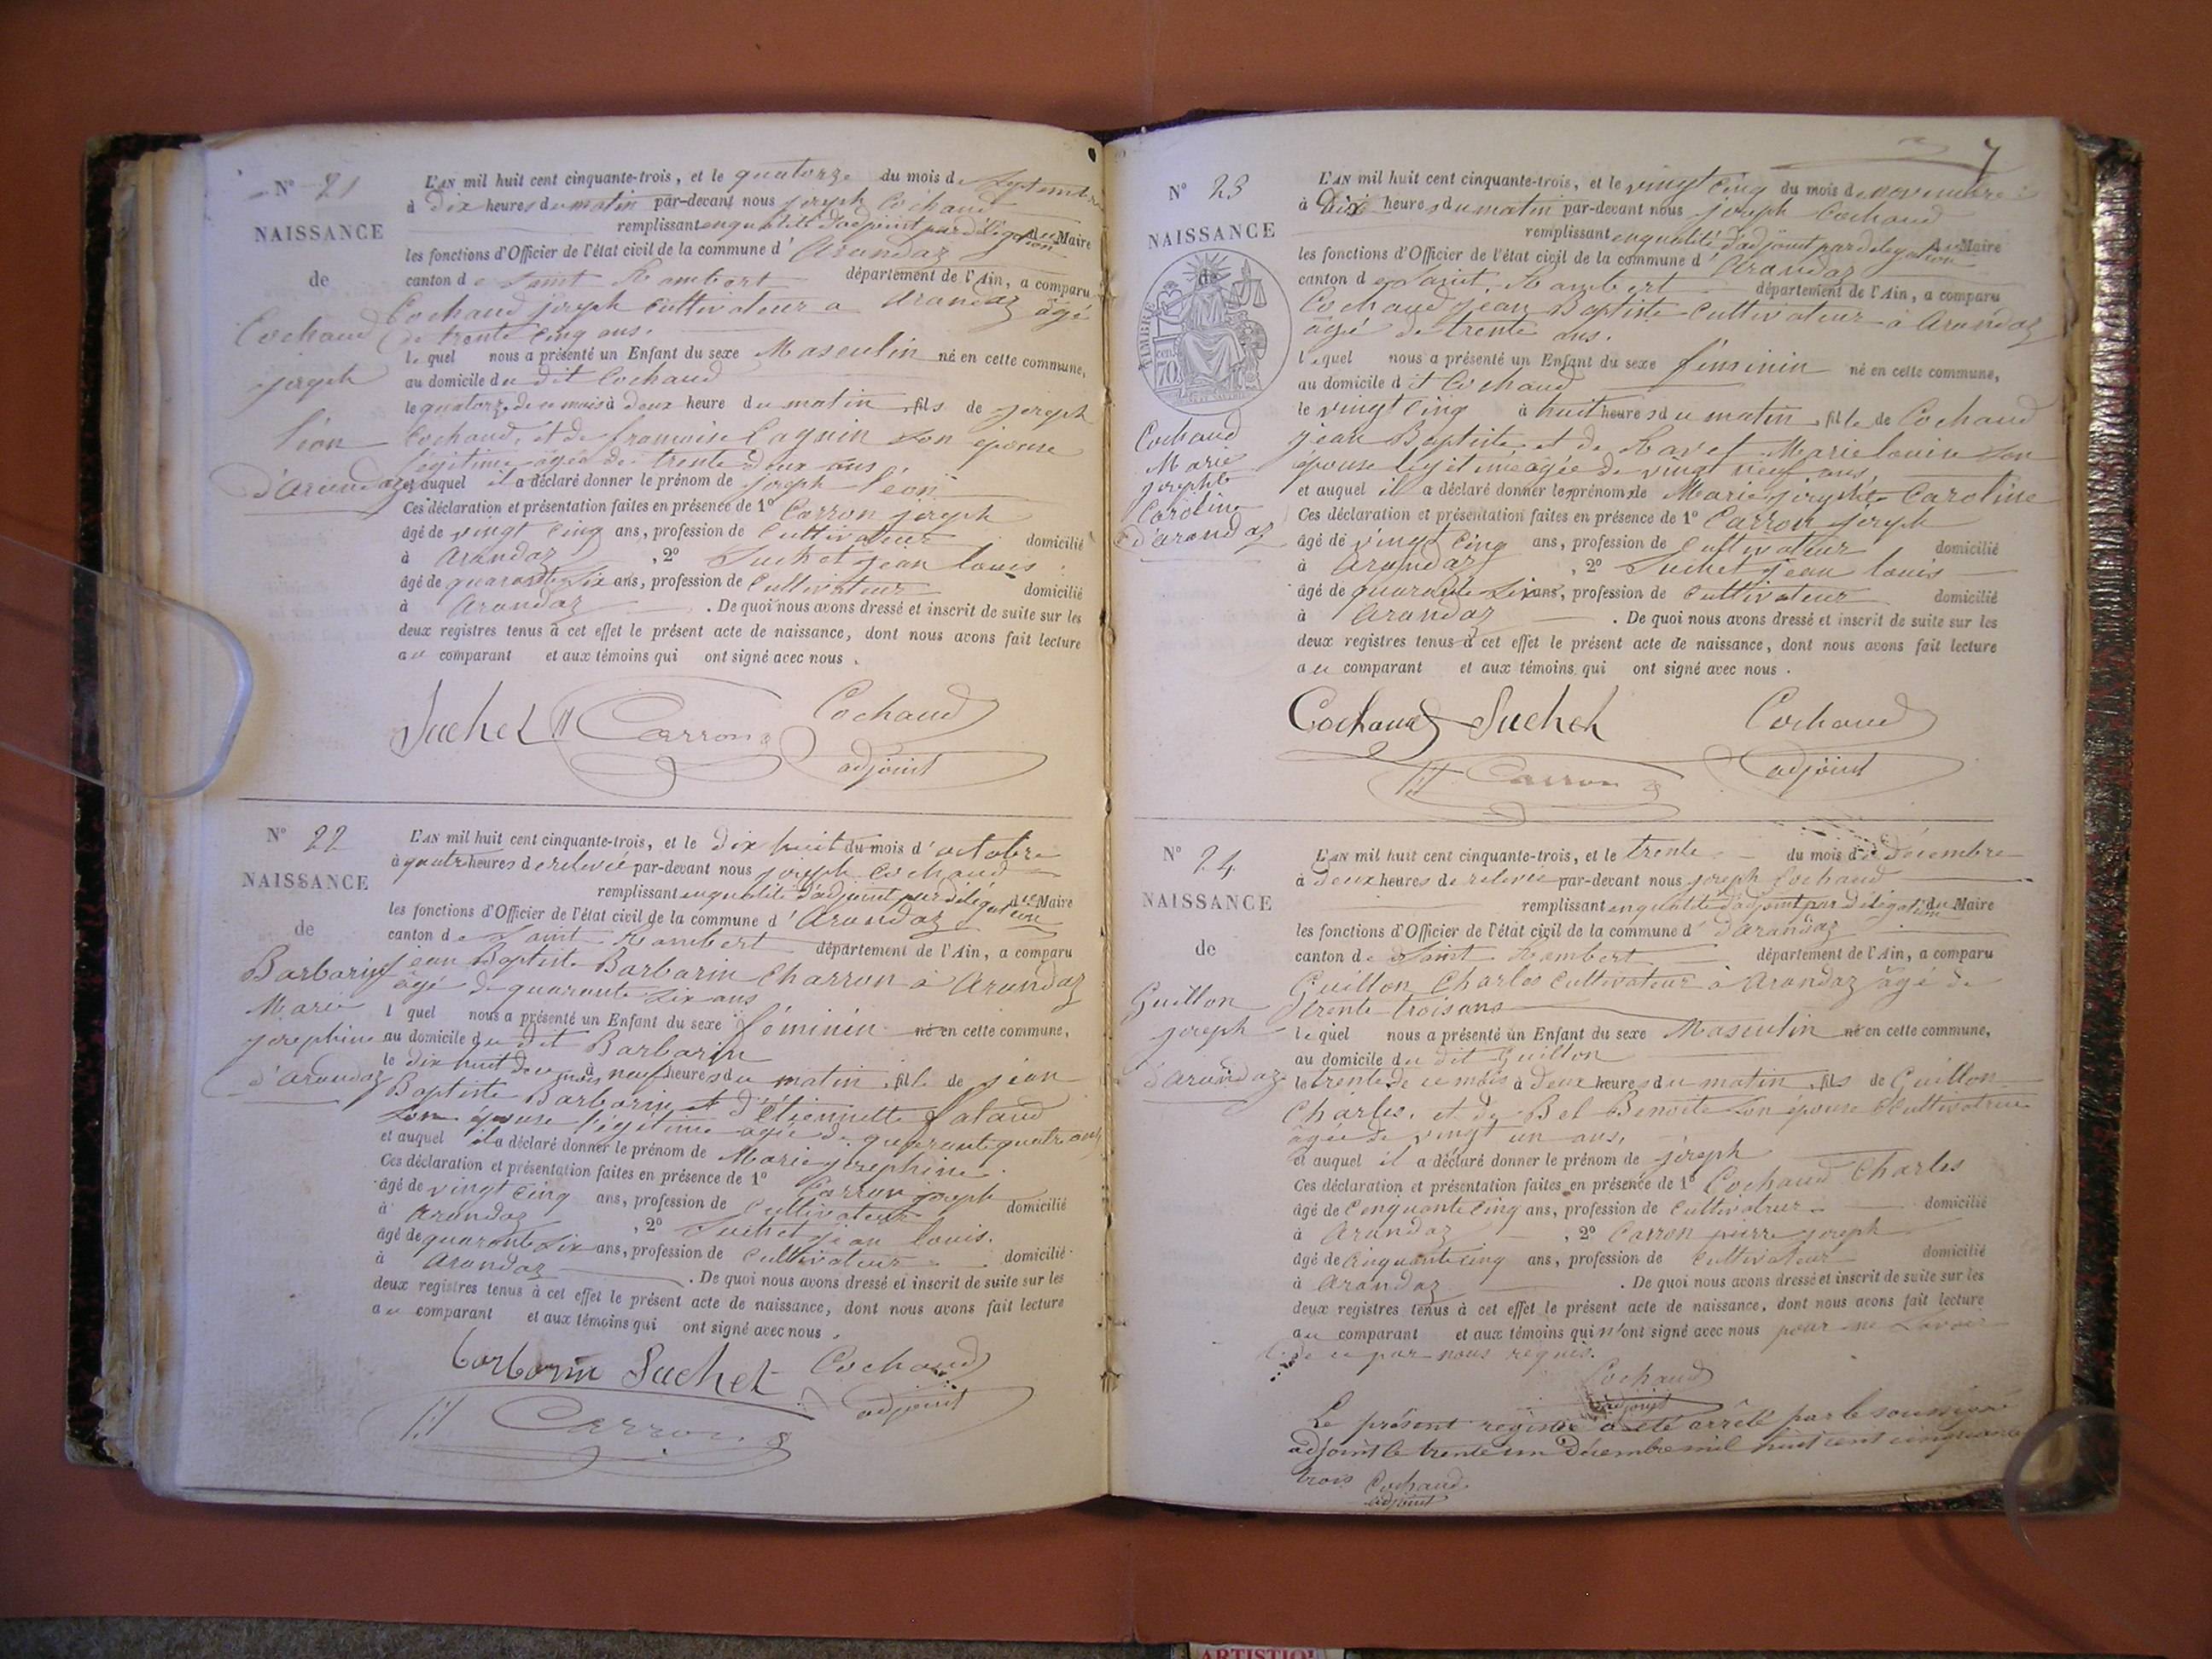 N° 21
NAISSANCE
de
Cochaud
joseph
léon
d'arandaz
L'AN mil huit cent cinquante-trois, et le quatorze du mois de septembre
à dix heures du matin par-devant nous joseph Cochaud
remplissant en qualité d'adjoint par délégation du Maire
les fonctions d'Officier de l'état civil de la commune d'Arandaz
canton de Saint Rambert département de l'Ain, a comparu
Cochaud joseph cultivateur a arandaz âgé
de trente cinq ans.
lequel nous a présenté un Enfant du sexe Masculin né en cette commune,
au domicile du dit Cochaud
le quatorze de ce mois à deux heure du matin, fils de joseph
Cochaud, et de francoise son épouse
légitime agée de trente deux ans
et auquel il a déclaré donner le prénom de joseph léon
Ces déclaration et présentation faites en présence de 1° Carron joseph
âgé de vingt cinq ans, profession de Cultivateur domicilié
à Arandaz, 2° Suchet jean louis
âgé de quarante six ans, profession de Cultivateur domicilié
à Arandaz. De quoi nous avons dressé et inscrit de suite sur les
deux registres tenus à cet effet le présent acte de naissance, dont nous avons fait lecture
au comparant et aux témoins qui ont signé avec nous.
Suchet Carron Cochaud
adjoint
N° 22
NAISSANCE
de
Barbarin
Marie
josephine
d'arandaz
L'AN mil huit cent cinquante-trois, et le dix huit du mois d'octobre
à quatre heures de relevée par-devant nous joseph Cochaud
remplissant en qualité d'adjoint par délégation du Maire
les fonctions d'Officier de l'état civil de la commune d'Arandaz
canton de Saint Rambert département de l'Ain, a comparu
jean Baptiste Barbarin Charron à Arandaz
âgé de quarante six ans
l quel nous a présenté un Enfant du sexe féminin né en cette commune,
au domicile du dit Barbarin
le dix huit de ce mois à neuf heures du matin, fille de jean
Baptiste Barbarin et d'Etiennette
son épouse légitime agée de quarante quatre ans
et auquel il a déclaré donner le prénom de Marie josephine
Ces déclaration et présentation faites en présence de 1° Carron joseph
âgé de vingt cinq ans, profession de Cultivateur domicilié
à Arandaz, 2° Suchet jean louis.
âgé de quarante six ans, profession de Cultivateur domicilié
à Arandaz. De quoi nous avons dressé et inscrit de suite sur les
deux registres tenus à cet effet le présent acte de naissance, dont nous avons fait lecture
au comparant et aux témoins qui ont signé avec nous.
barbarin Suchet Cochaud
adjoint
Carron
7
N° 23
NAISSANCE
de
TIMBRE
70
Cochaud
Marie
josephte
Caroline
d'arandaz
L'AN mil huit cent cinquante-trois, et le vingt cinq du mois de novembre
à dix heures du matin par-devant nous joseph Cochaud
remplissant en qualité d'adjoint par délégation du Maire
les fonctions d'Officier de l'état civil de la commune d'Arandaz
canton de Saint Rambert département de l'Ain, a comparu
Cochaud jean Baptiste Cultivateur à Arandaz
âgé de trente ans.
lequel nous a présenté un Enfant du sexe féminin né en cette commune,
au domicile dit Cochaud
le vingt cinq à huit heures du matin, fille de Cochaud
jean Baptiste, et de Ravet Marie louise son
épouse legitime agée de vingt neuf ans
et auquel il a déclaré donner les prénoms de Marie josephte Caroline
Ces déclaration et présentation faites en présence de 1° Carron joseph
âgé de vingt cinq ans, profession de Cultivateur domicilié
à Arandaz, 2° Suchet jean louis
âgé de quarante six ans, profession de Cultivateur domicilié
à Arandaz. De quoi nous avons dressé et inscrit de suite sur les
deux registres tenus à cet effet le présent acte de naissance, dont nous avons fait lecture
au comparant et aux témoins qui ont signé avec nous.
Cochaud Suchet Cochaud
adjoint
Carron
N° 24
NAISSANCE
de
Guillon
joseph
d'arandaz
L'AN mil huit cent cinquante-trois, et le trente du mois de décembre
à deux heures de relevée par-devant nous joseph Cochaud
remplissant en qualité d'adjoint par délégation du Maire
les fonctions d'Officier de l'état civil de la commune d'arandaz
canton de Saint Rambert département de l'Ain, a comparu
Guillon Charles Cultivateur à Arandaz âgé de
trente trois ans
lequel nous a présenté un Enfant du sexe Masculin né en cette commune,
au domicile du dit Guillon
le trente de ce mois à deux heures du matin, fils de Guillon
Charles, et de Bel Benoite son épouse Cultivatrice
âgée de vingt un ans,
et auquel il a déclaré donner le prénom de joseph
Ces déclaration et présentation faites en présence de 1° Cochaud Charles
âgé de Cinquante cinq ans, profession de Cultivateur domicilié
à Arandaz, 2° Carron pierre joseph
âgé de cinquante cinq ans, profession de Cultivateur domicilié
à Arandaz. De quoi nous avons dressé et inscrit de suite sur les
deux registres tenus à cet effet le présent acte de naissance, dont nous avons fait lecture
au comparant et aux témoins qui n'ont signé avec nous pour ne savoir
de ce par nous requis.
Cochaud
adjoint
Le présent registre a été arrêté par le soussigné
adjoint le trente un Décembre mil huit cent cinquante
trois Cochaud
adjoint
ARTISTIQ